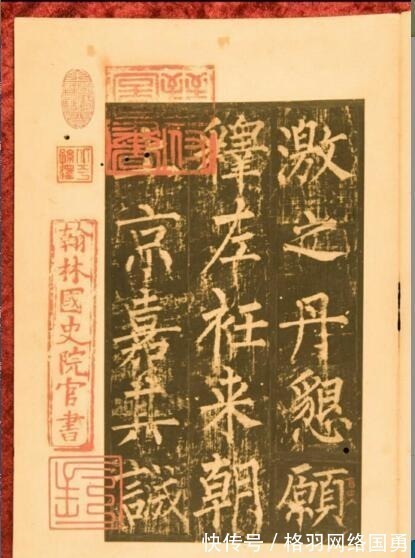 激之丹懇願
釋左衽来朝
京嘉其誠
翰林國史院官書
快传号/格羽网络国勇